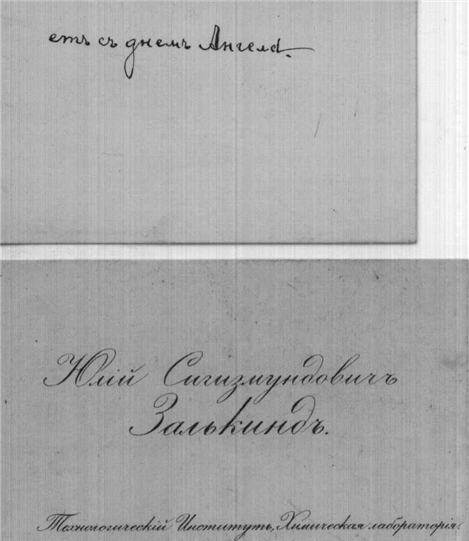 етъ съ днемъ Ангела.
Юлій Сигизмундовичъ
Залькиндъ.
Технологическій Институтъ, Химическая лабораторія.